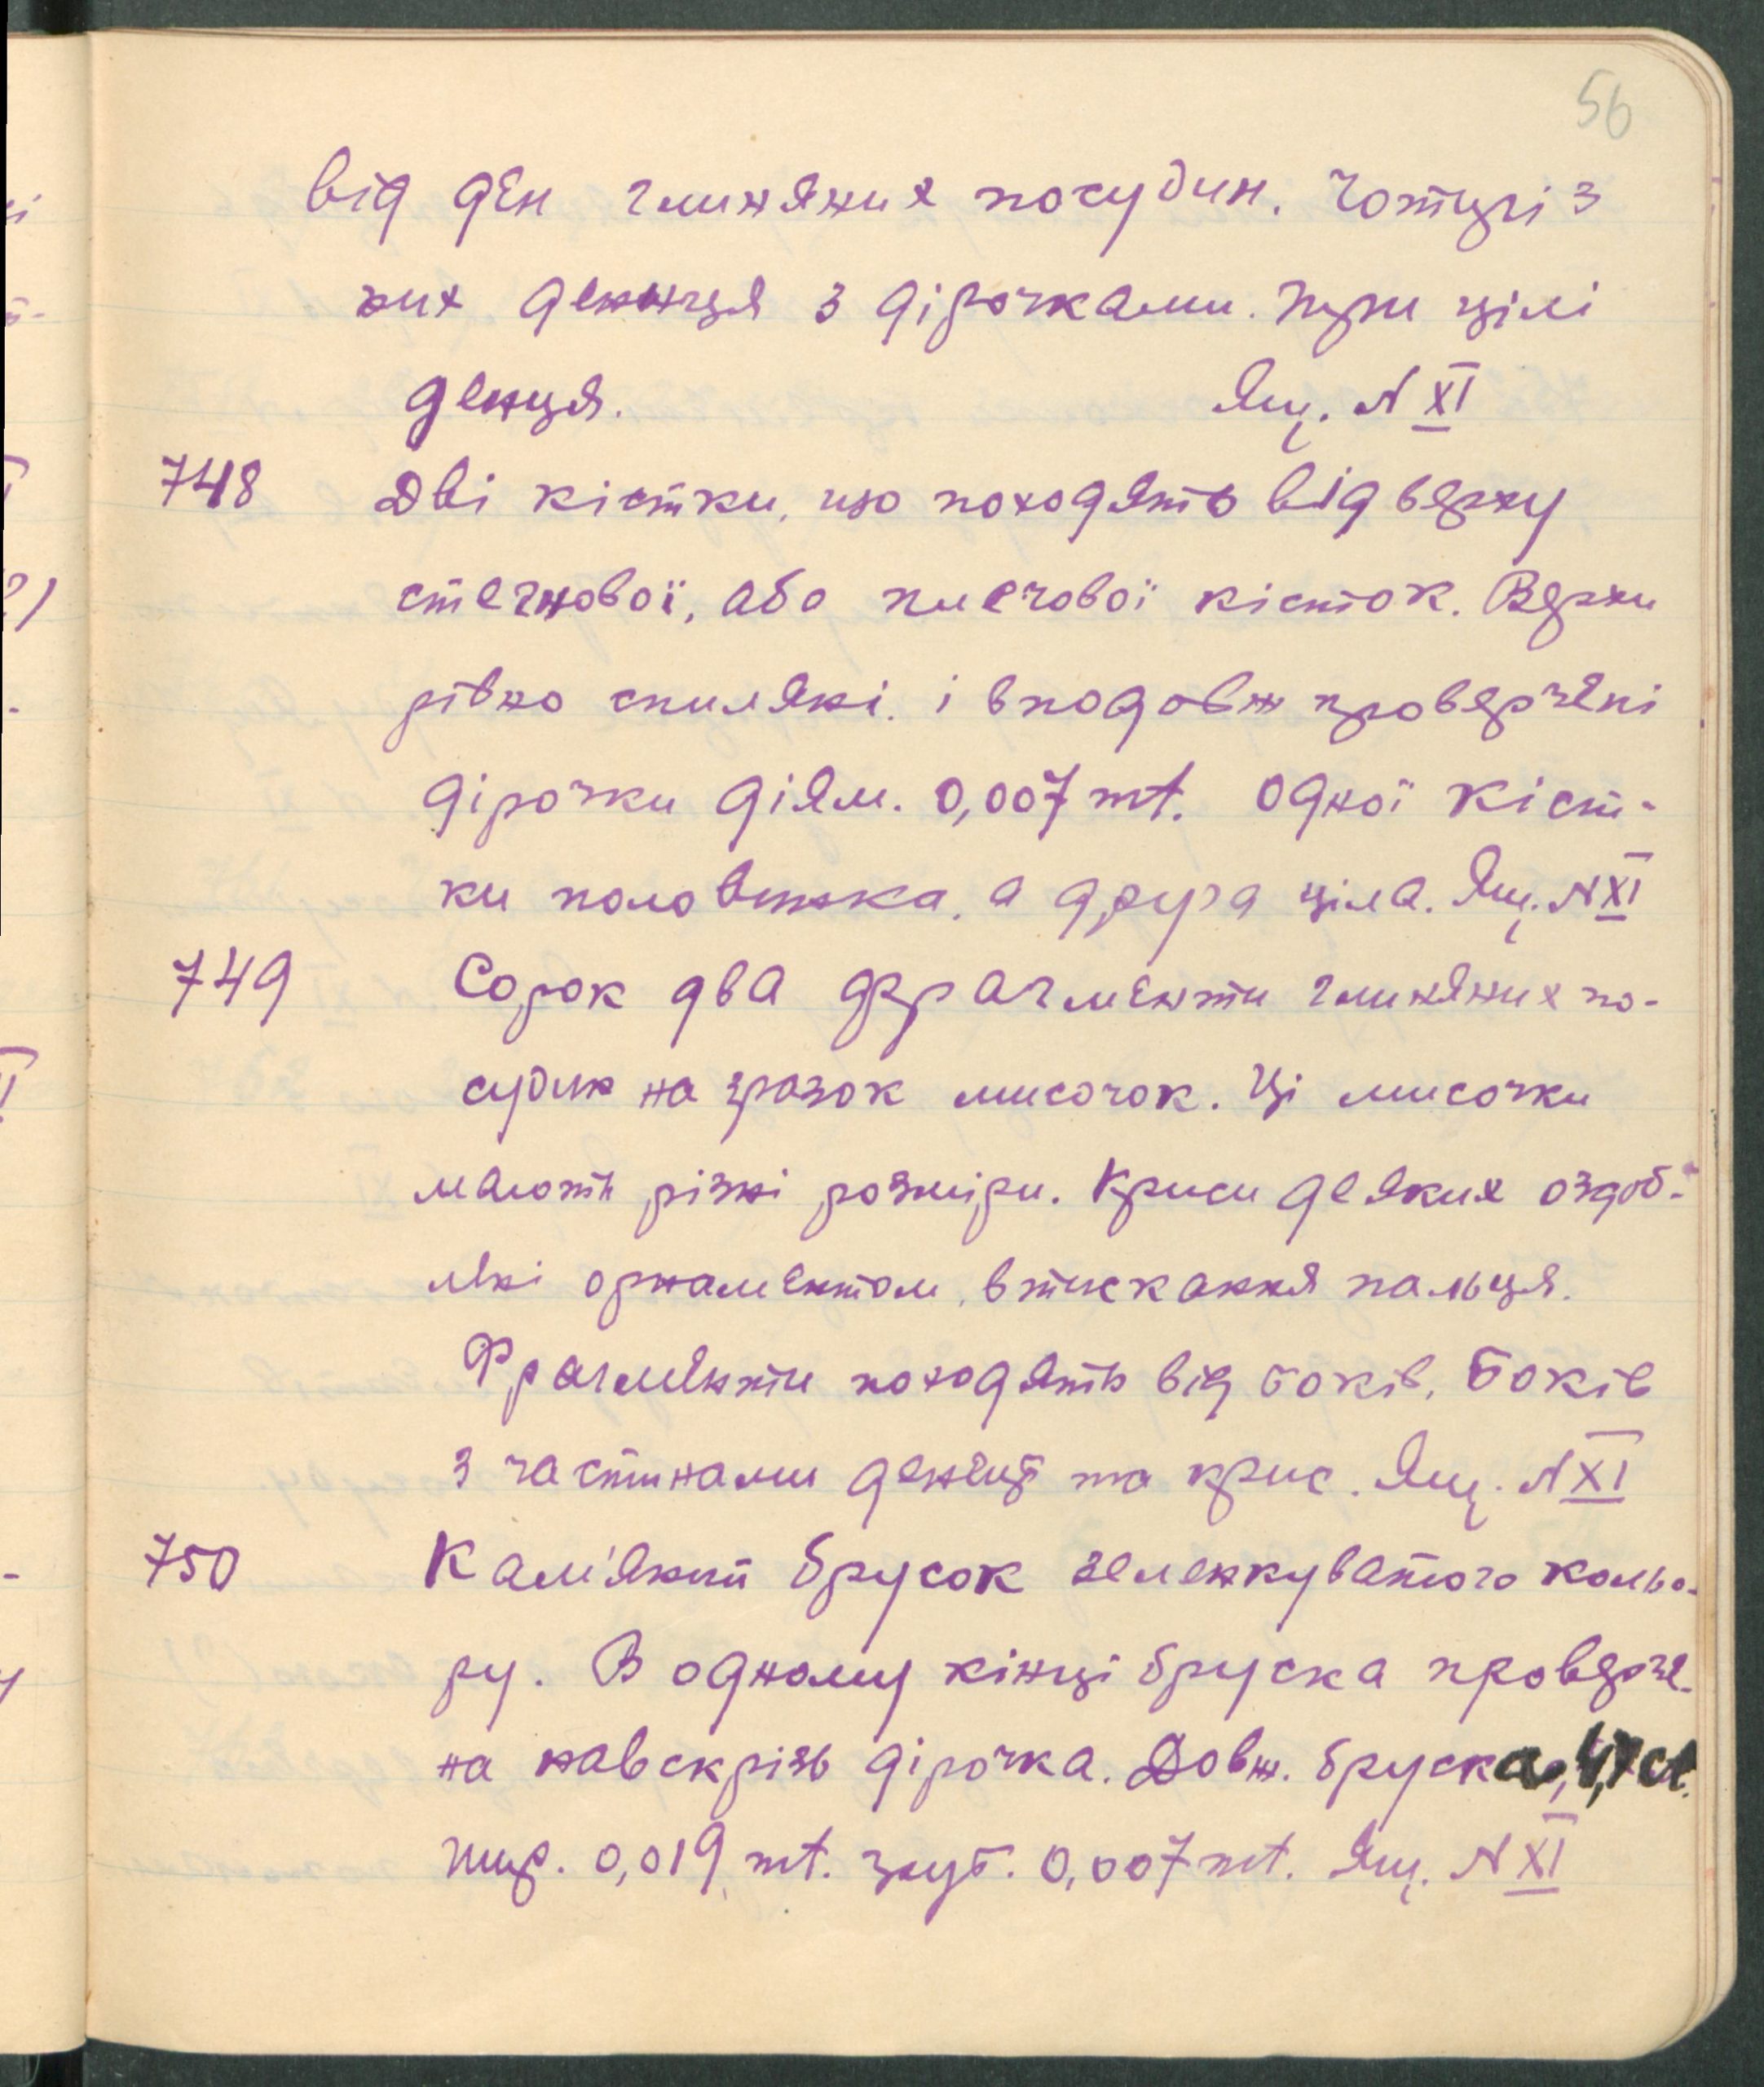 56
від ден глиняних посудин. Чотирі з
них денця з дірочками. Три цілі
денця. Ящ. N XI
748 Дві кістки, що походять від верху
стегнової, або плечової кісток. Верхи
рівно спиляні. і вподовж проверчені
дірочки діям. 0,007 mt. Одної кіст-
ки половинка, а друга ціла. Ящ. N XI
749 Сорок два фрагменти глиняних по-
судин на зразок мисочок. Ці мисочки
мають різні розміри. Криси деяких оздоб-
лені орнаментом, втискання пальця.
Фрагменти походять від боків, боків
з частинами денець та крис. Ящ. N XI
750 Кам'яний брусок зеленкуватого кольо-
ру. В одному кінці бруска проверче-
на навскрізь дірочка. Довж. бруска
шир. 0,019 mt. зауб. 0,007 mt. Ящ. N XI